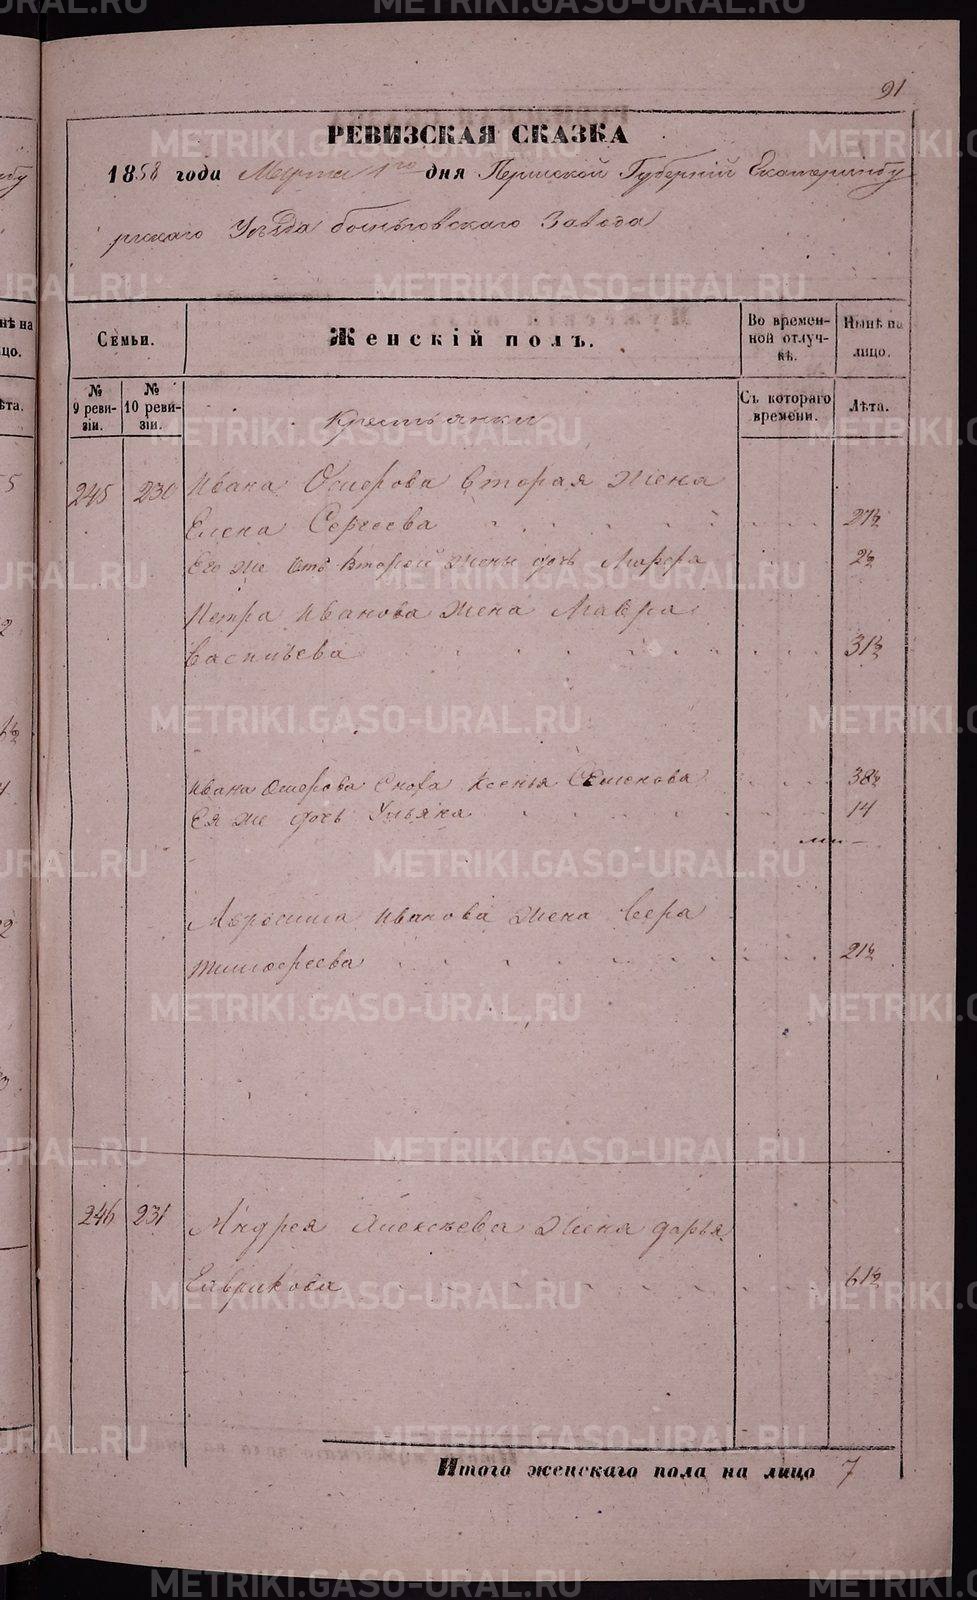 91
РЕВИЗСКАЯ СКАЗКА
1858 года Марта 1го дня Пермской Губерніи Екатеринбу
ргскаго Уѣзда Завода
Семьи.
Женскій полъ.
Во времен-
ной отлуч-
кѣ.
Нынѣ на
лицо.
№
9 реви-
зіи.
№
10 реви-
зіи.
Крестьянки
Съ котораго
времени.
Лѣта.
245 230 Ивана Вторая жена
Елена Сергеева 27½
Его же отъ второй жены дочь Марфа 2½
Петра Иванова жена Мавра
Васильева 31½
Ивана Сноха Ксенья Семенова 38½
Ея же дочь Ульяна 14
Иванова жена Вера
Тимофеева 21½
246 231 Андрея Алексѣева жена дарья
61½
Итого женскаго пола на лицо 7
METRIKI.GASO-URAL.RU